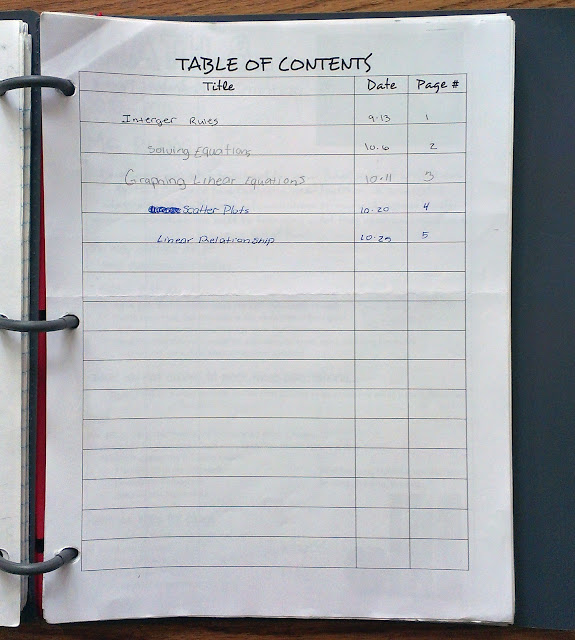 TABLE OF CONTENTS
Title Date Page #
Interger Rules 9-13 1
Solving Equations 10.6 2
Graphing Linear Equations 10.11 3
Scatter Plots 10-20 4
Linear Relationship 10-25 5